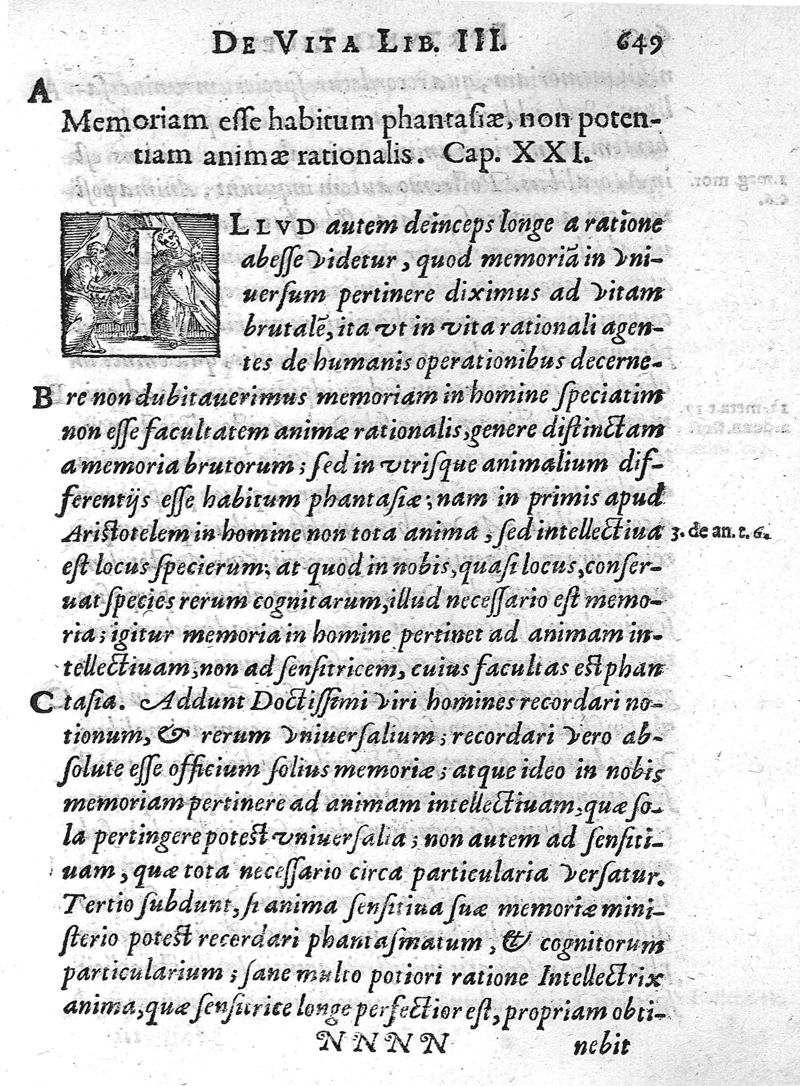 DE VITA LIB. III. 649
A
Memoriam eſſe habitum phantaſiæ, non poten-
tiam animæ rationalis. Cap. XXI.
ILLVD autem deinceps longe a ratione
abeſſe videtur, quod memoriã in vni-
uerſum pertinere diximus ad vitam
brutalẽ, ita vt in vita rationali agen-
tes de humanis operationibus decerne-
B re non dubitauerimus memoriam in homine ſpeciatim
non eſſe facultatem animæ rationalis, genere diſtinctam
a memoria brutorum; ſed in vtriſque animalium dif-
ferentijs eſſe habitum phantaſiæ; nam in primis apud
Ariſtotelem in homine non tota anima, ſed intellectiua 3. de an. t. 6.
eſt locus ſpecierum; at quod in nobis, quaſi locus, conſer-
uat ſpecies rerum cognitarum, illud neceſſario eſt memo-
ria; igitur memoria in homine pertinet ad animam in-
tellectiuam, non ad ſenſitricem, cuius facultas eſt phan
C taſia. Addunt Doctiſſimi viri homines recordari no-
tionum, & rerum vniuerſalium; recordari vero ab-
ſolute eſſe officium ſolius memoriæ; atque ideo in nobis
memoriam pertinere ad animam intellectiuam, quæ ſo-
la pertingere poteſt vniuerſalia; non autem ad ſenſiti-
uam, quæ tota neceſſario circa particularia verſatur.
Tertio ſubdunt, ſi anima ſenſitiua ſuæ memoriæ mini-
ſterio poteſt recerdari phantaſmatum, & cognitorum
particularium; ſane multo potiori ratione Intellectrix
anima, quæ ſenſitrice longe perfectior eſt, propriam obti-
NNNN nebit